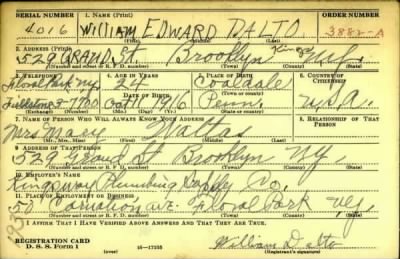 SERIAL NUMBER 1. NAME (Print) ORDER NUMBER
4016 WILLIAM EDWARD DALTO 3882-A
(First) (Middle) (Last)
2. ADDRESS (Print)
529 GRAND St. Brooklyn Kings N.Y.
(Number and street or R. F. D. number) (Town) (County) (State)
3. TELEPHONE 4. AGE IN YEARS 5. PLACE OF BIRTH 6. COUNTRY OF CITIZENSHIP
Floral Park N.Y. 24 Coaldale
DATE OF BIRTH
5-1700 Oct 16 1916 Penn. U.S.A.
(Mo.) (Day) (Yr.) (Town or county) (State or country)
7. NAME OF PERSON WHO WILL ALWAYS KNOW YOUR ADDRESS 8. RELATIONSHIP OF THAT PERSON
Mrs Mary Waltas
(Mr., Mrs., Miss) (First) (Middle) (Last)
9. ADDRESS OF THAT PERSON
529 Grand St Brooklyn N.Y.
(Number and street or R. F. D. number) (Town) (County) (State)
10. EMPLOYER'S NAME
Kingsway Plumbing Supply Co.
11. PLACE OF EMPLOYMENT OR BUSINESS
50 Carnation Ave. Floral Park N.Y.
(Number and street or R. F. D. number) (Town) (County) (State)
I AFFIRM THAT I HAVE VERIFIED ABOVE ANSWERS AND THAT THEY ARE TRUE.
REGISTRATION CARD
D. S. S. Form 1 16-17105 William Dalto
(Registrant's signature)